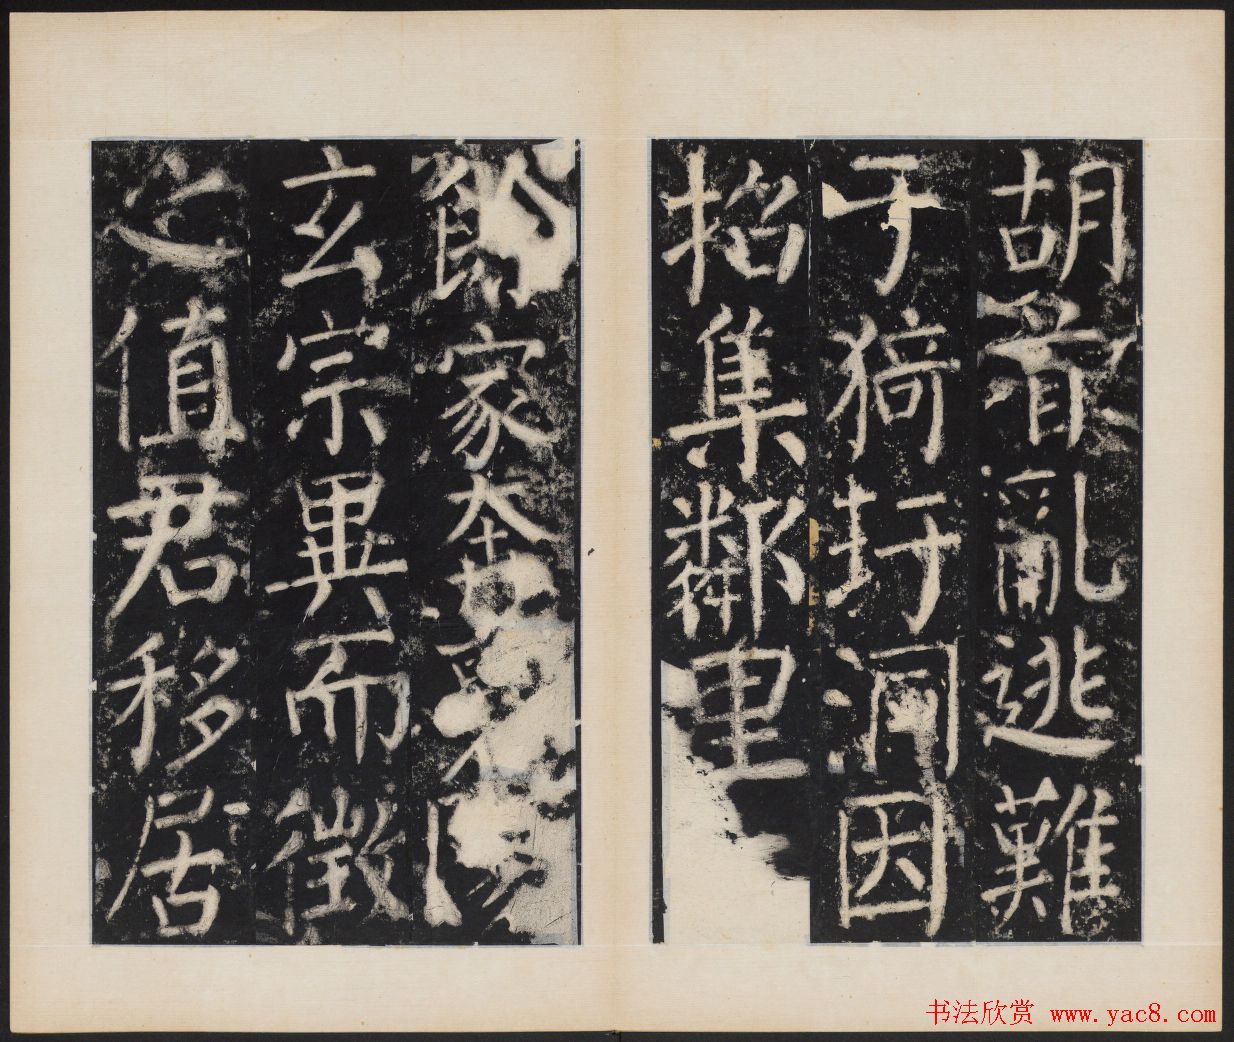 胡首亂逃難
于猗玗洞因
招集鄰里
家全
玄宗異而徵
之值君移居
书法欣赏 www.yac8.com